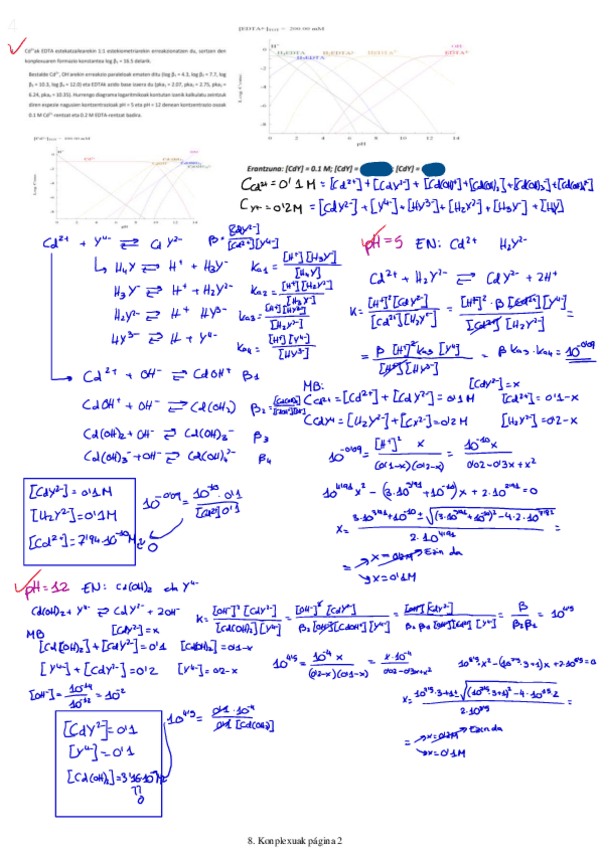 4
Cd²⁺ak EDTA estekatzailearekin 1:1 estekiometriarekin erreakzionatzen du, sortzen den
konplexuaren formazio konstantea log β₁ = 16.5 delarik.
Bestalde Cd²⁺, OH⁻arekin erreakzio paraleloak ematen ditu (log β₁ = 4.3, log β₂ = 7.7, log
β₃ = 10.3, log β₄ = 12.0) eta EDTA azido base izaera du (pka₁ = 2.07, pka₂ = 2.75, pka₃ =
6.24, pka₄ = 10.35). Hurrengo diagrama logaritmikoak kontutan izanik kalkulatu zeintzuk
diren espezie nagusien kontzentrazioak pH = 5 eta pH = 12 denean kontzentrazio osoak
0.1 M Cd²⁺ rentzat eta 0.2 M EDTA rentzat badira.
[EDTA⁴⁻]TOT = 200.00 mM
H⁺
OH⁻
pH
Erantzuna: [CdY] = 0.1 M; [CdY] = ; [CdY] =
C Cd²⁺ = 0'1 M = [Cd²⁺] + [CdY²⁻] + [Cd(OH)⁺] + [Cd(OH)₂] + [Cd(OH)₃⁻] + [Cd(OH)₄²⁻]
C Y⁴⁻ = 0'2M = [CdY²⁻] + [Y⁴⁻] + [HY³⁻] + [H₂Y²⁻] + [H₃Y⁻] + [H₄Y]
Cd²⁺ + Y⁴⁻ ⇌ CdY²⁻ β = [CdY²⁻]/[Cd²⁺][Y⁴⁻]
H₄Y ⇌ H⁺ + H₃Y⁻ Ka₁ = [H⁺][H₃Y⁻]/[H₄Y]
H₃Y⁻ ⇌ H⁺ + H₂Y²⁻ Ka₂ = [H⁺][H₂Y²⁻]/[H₃Y⁻]
H₂Y²⁻ ⇌ H⁺ HY³⁻ Ka₃ = [H⁺][HY³⁻]/[H₂Y²⁻]
HY³⁻ ⇌ H + Y⁴⁻ Ka₄ = [H⁺][Y⁴⁻]/[HY³⁻]
Cd²⁺ + OH⁻ ⇌ CdOH⁺ β₁
CdOH⁺ + OH⁻ ⇌ Cd(OH₂) β₂ = [Cd(OH)₂]/[CdOH⁺][OH⁻]
Cd(OH)₂ + OH⁻ ⇌ Cd(OH)₃⁻ β₃
Cd(OH)₃⁻ + OH⁻ ⇌ Cd(OH)₄²⁻ β₄
pH = 5 EN: Cd²⁺ H₂Y²⁻
Cd²⁺ + H₂Y²⁻ ⇌ CdY²⁻ + 2H⁺
K = [H⁺]²[CdY²⁻]/[Cd²⁺][H₂Y²⁻] = [H⁺]²·β [Cd²⁺][Y⁴⁻]/[Cd²⁺][H₂Y²⁻] =
= β [H⁺]² Ka₃ [Y⁴⁻]/[H⁺][HY³⁻] = β Ka₃ · Ka₄ = 10^-0'09
MB: [CdY²⁻] = x
C Cd²⁺ = [Cd²⁺] + [CdY²⁻] = 0'1M [Cd²⁺] = 0'1-x
C CdY⁴⁻ = [H₂Y²⁻] + [CY²⁻] = 0'2M [H₂Y²⁻] = 0'2-x
10^-0'09 = [H⁺]² x/(0'1-x)(0'2-x) = 10^-10 x/0'02-0'3x+x²
10^4'91 x² - (3·10^3'91 + 10^-10) x + 2·10^2'91 = 0
= x = 0'2M → Ezin da
x = 0'1M
[CdY²⁻] = 0'1M
[H₂Y²⁻] = 0'1M
[Cd²⁺] = 7'94·10⁻¹⁰M ≈ 0
10^-0'09 = 10⁻¹⁰·0'1/[Cd²⁺]0'1
pH = 12 EN: Cd(OH)₂ eta Y⁴⁻
Cd(OH)₂ + Y⁴⁻ ⇌ CdY²⁻ + 2OH⁻ K = [OH⁻]²[CdY²⁻]/[Cd(OH)₂][Y⁴⁻] = [OH⁻]²[CdY²⁻]/β₂[OH⁻][CdOH⁺][Y⁴⁻] = [OH⁻][CdY²⁻]/β₂β₁[OH⁻][Cd²⁺][Y⁴⁻] = β/β₂β₁ = 10^4'5
MB [CdY²⁻] = x
[Cd(OH)₂] + [CdY²⁻] = 0'1 [Cd(OH)₂] = 0'1-x
[Y⁴⁻] + [CdY²⁻] = 0'2 [Y⁴⁻] = 0'2-x
[OH⁻] = 10⁻¹⁴/10⁻¹² = 10⁻²
10^4'5 = 10⁻⁴x/(0'2-x)(0'1-x) = x·10⁻⁴/0'02-0'3x+x²
= x = 0'2M → Ezin da
x = 0'1M
[CdY²⁻] = 0'1
[Y⁴⁻] = 0'1
[Cd(OH)₂] = 3'16·10⁻⁹M ≈ 0
10^4'5 = 0'1·10⁻⁴/0'1 [Cd(OH)₂]
8. Konplexuak página 2